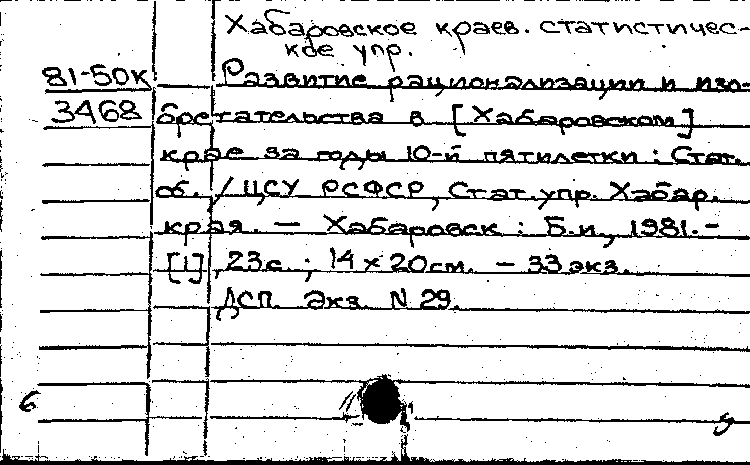 Хабаровское краев. статистичес-
кое упр.
81-50к Развитие рационализации и изо-
3468 бретательства в [Хабаровском]
крае за годы 10-й пятилетки : Стат.
об. / ЦСУ РСФСР, Стат. упр. Хабар.
края. — Хабаровск : Б.и., 1981.-
[1], 23с. ; 14 х 20 см. — 33 экз.
ДСП. Экз. N 29.
6